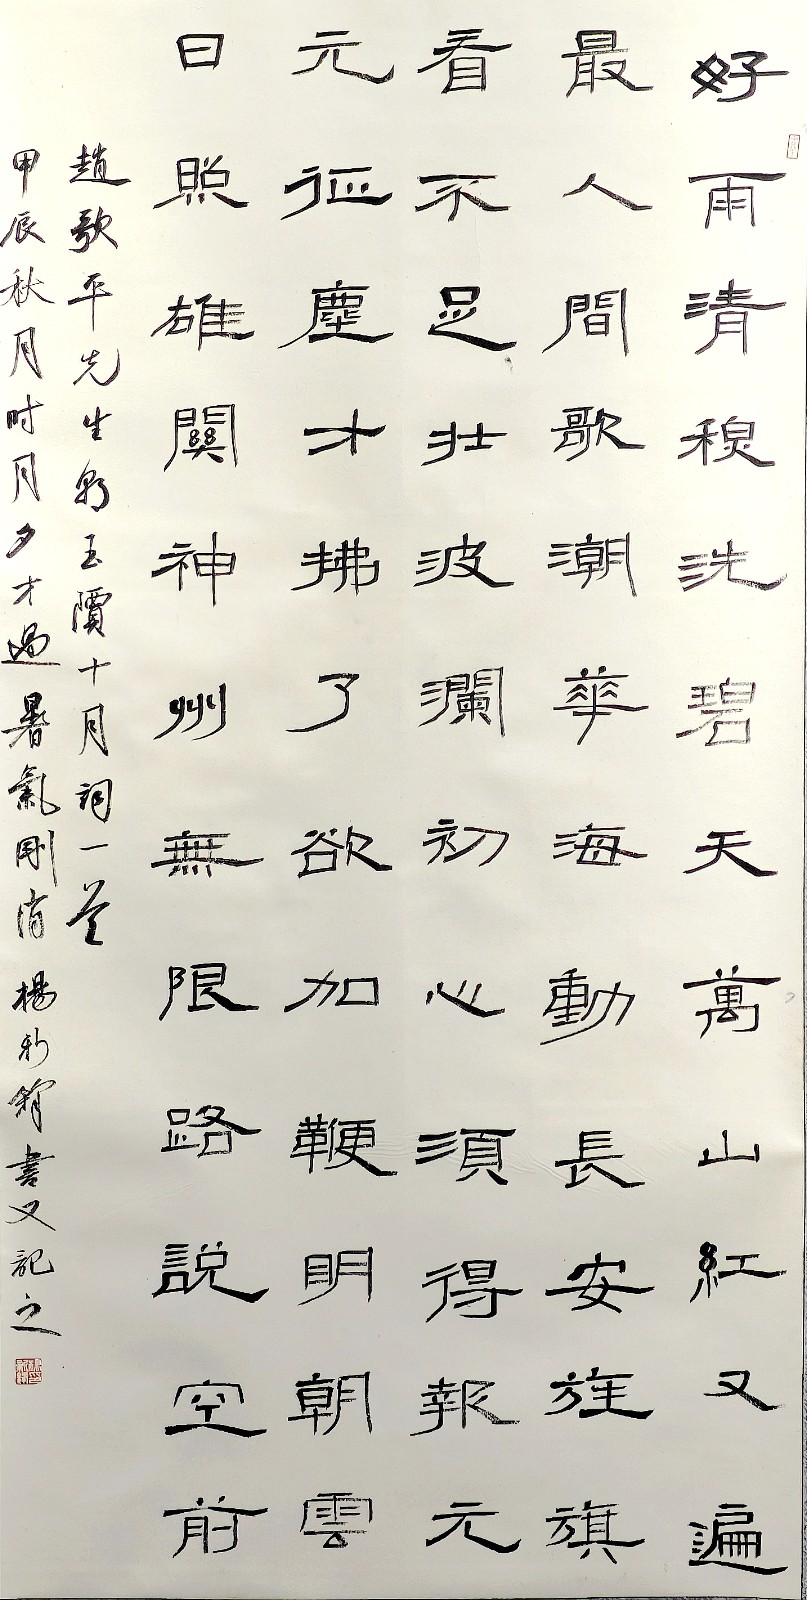 好雨清穆洗碧天萬山紅又遍
最人間歌潮華海動長安旌旗
看不足壯波瀾初心須得報元
元征塵才拂了欲加鞭明朝雲
日照雄關神州無限路說空前
趙歌平先生新玉債十月詞一首
甲辰秋月時月夕才過暑氣剛消楊新書又記之